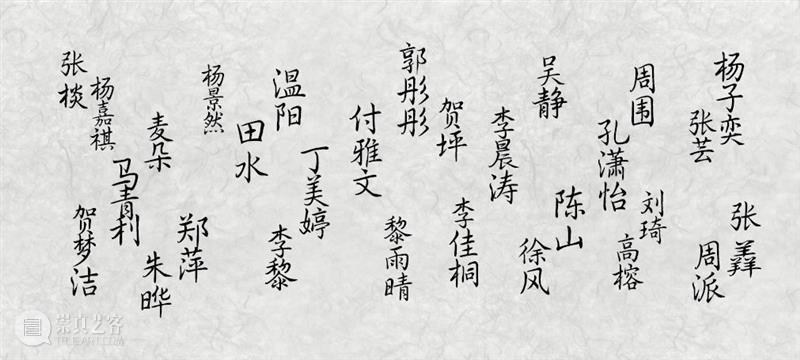 杨子奕
张芸
张羴
周派
周围
孔潇怡
刘琦
高榕
吴静
李晨涛
陈山
徐风
郭彤彤
贺坪
李佳桐
付雅文
黎雨晴
温阳
丁美婷
田水
李黎
杨景然
麦朵
郑萍
朱晔
张棪
杨嘉祺
马青利
贺梦洁
崇真艺客
TRUEART.COM